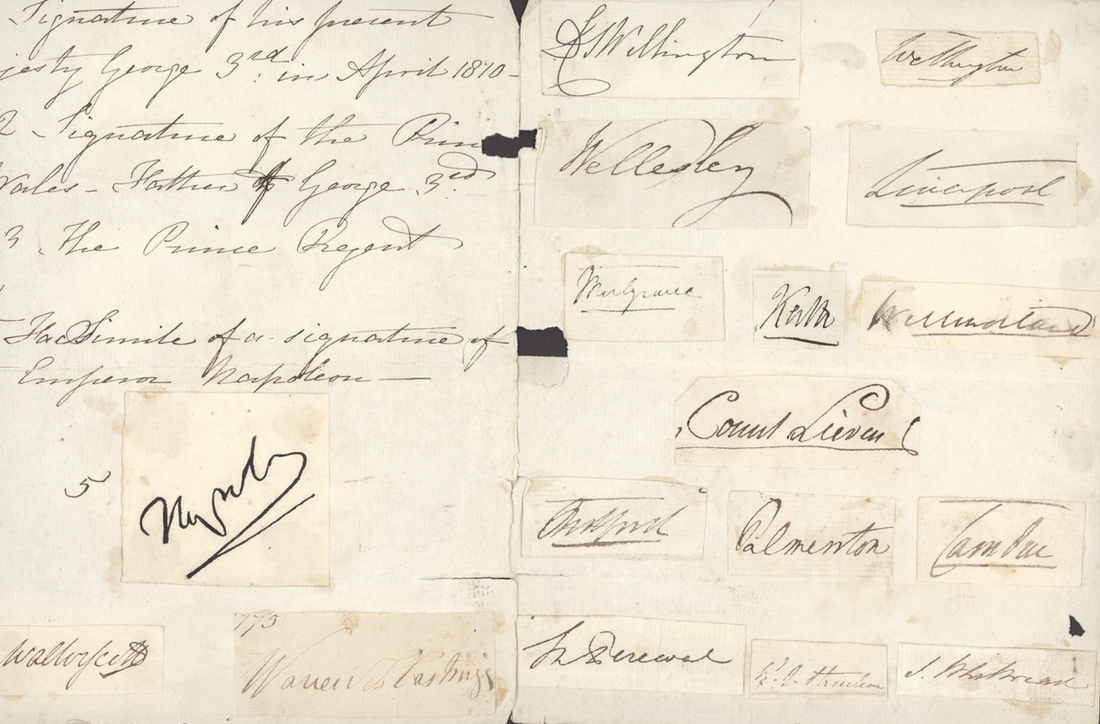 Signature of his present
jesty George 3rd. in April 1810-
2 Signature of the Prin
Wales - Father of George 3rd
3 The Prince Regent
FacSimile of a signature of
Emperor Napoleon —
5
Walter Scott
775
Warren Hastings
Wellington
Wellington
Wellesley
Liverpool
Keith
Westmorland
Count Lieven
Palmerston
Camden
Sp Perceval
S. Whitbread